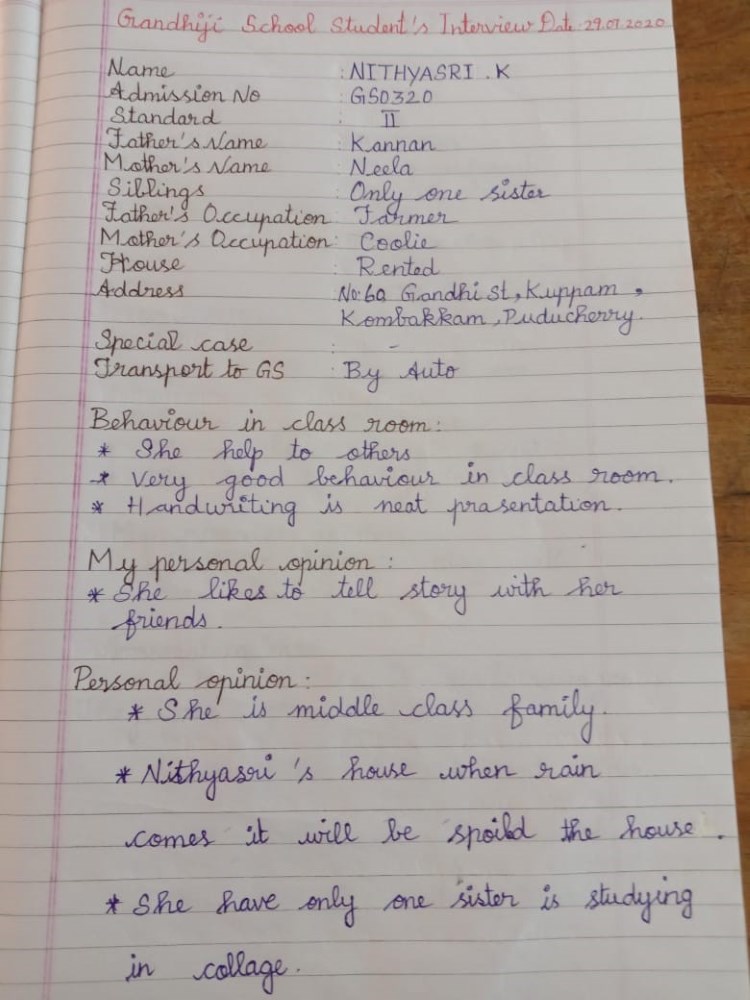 Gandhiji School Student's Interview Date 29.07.2020
Name : NITHYASRI .K
Admission No : GS0320
Standard : II
Father's Name : Kannan
Mother's Name : Neela
Siblings : Only one sister
Father's Occupation : Farmer
Mother's Occupation : Coolie
House : Rented
Address : No:60 Gandhi St, Kuppam,
Kombakkam, Puducherry.
Special case : -
Transport to GS : By Auto
Behaviour in class room:
* She help to others
* Very good behaviour in class room.
* Handwriting is neat prasentation.
My personal opinion:
* She likes to tell story with her
friends.
Personal opinion:
* She is middle class family.
* Nithyasri's house when rain
comes it will be spoild the house.
* She have only one sister is studying
in collage.